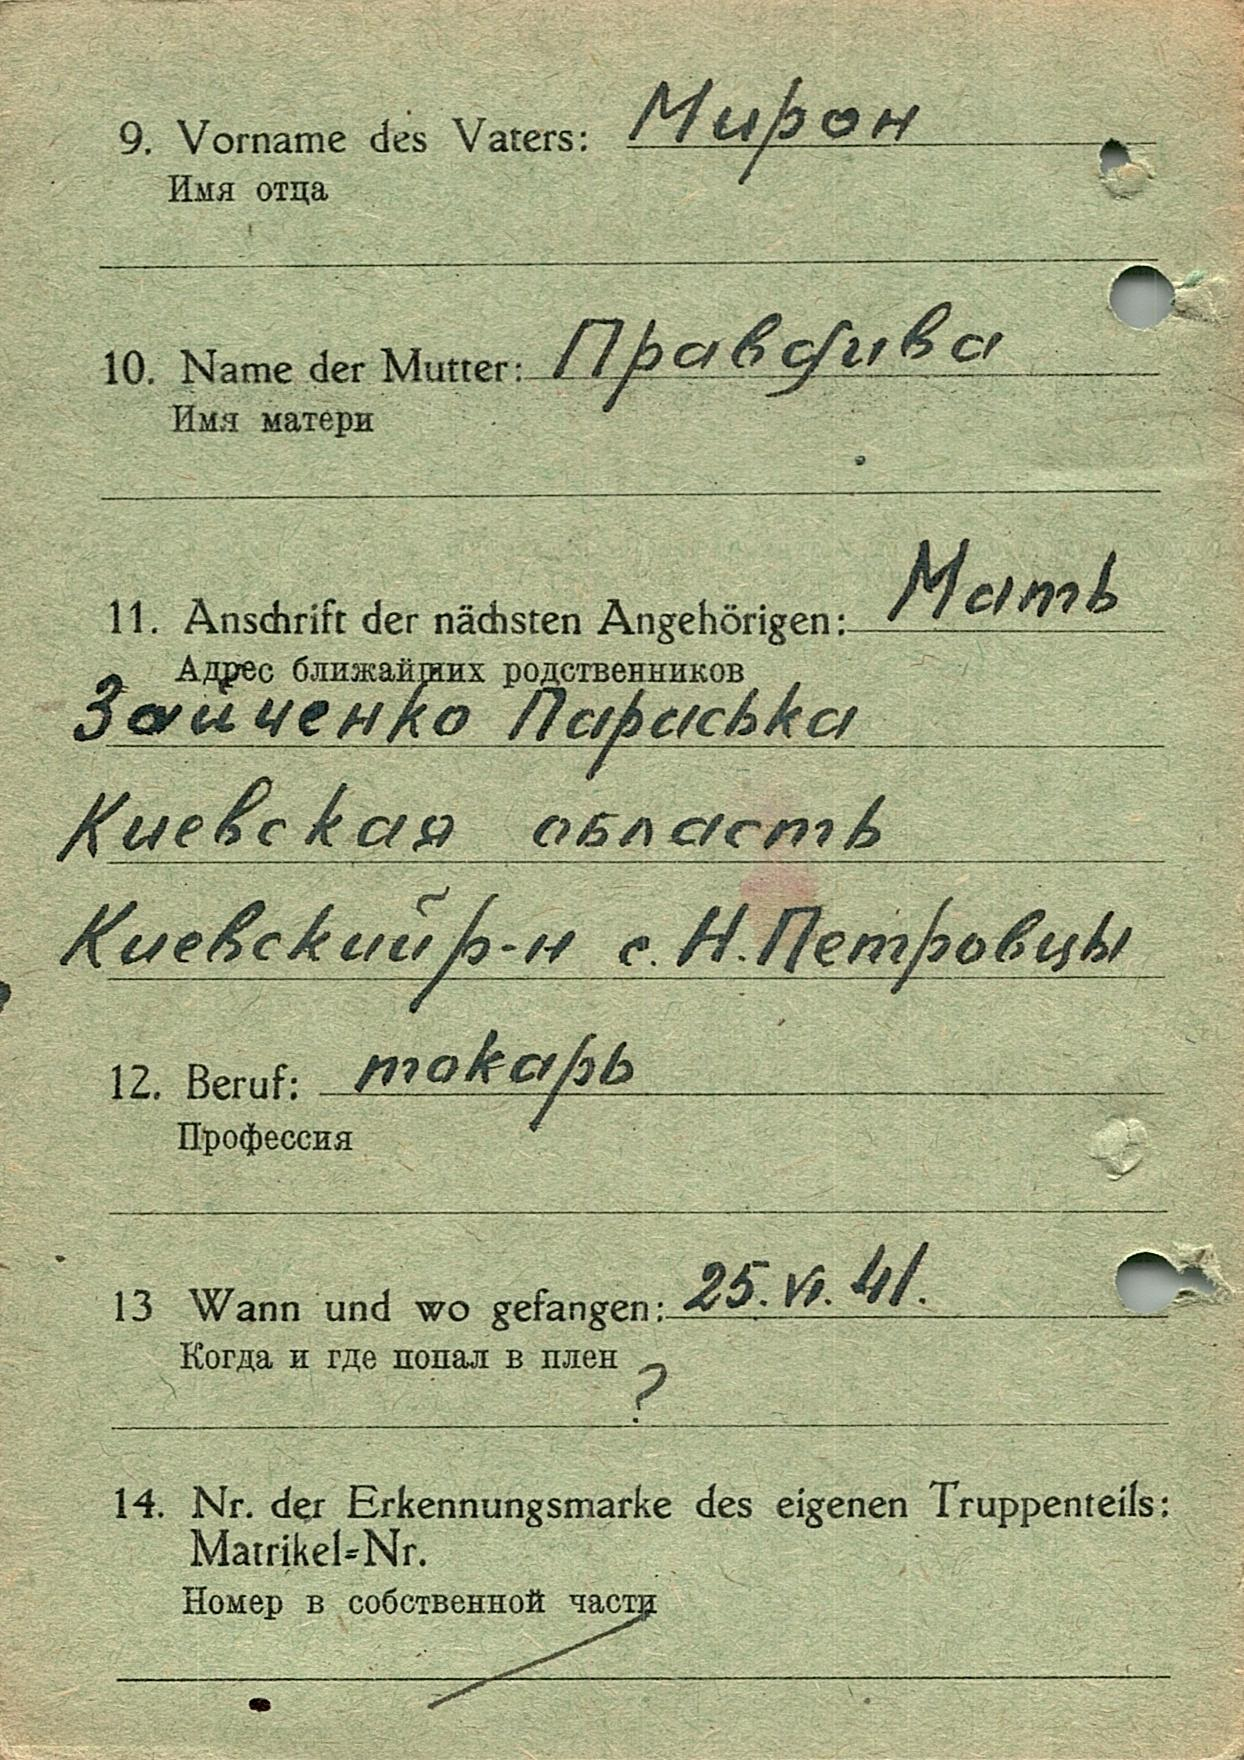 9. Vorname des Vaters: Мирон
Имя отца
10. Name der Mutter: Правдива
Имя матери
11. Anschrift der nächsten Angehörigen: Мать
Адрес ближайших родственников
Зайченко Параська
Киевская область
Киевский р-н с. Н. Петровцы
12. Beruf: токарь
Профессия
13 Wann und wo gefangen: 25. VI. 41.
Когда и где попал в плен
?
14. Nr. der Erkennungsmarke des eigenen Truppenteils:
Matrikel-Nr.
Номер в собственной части